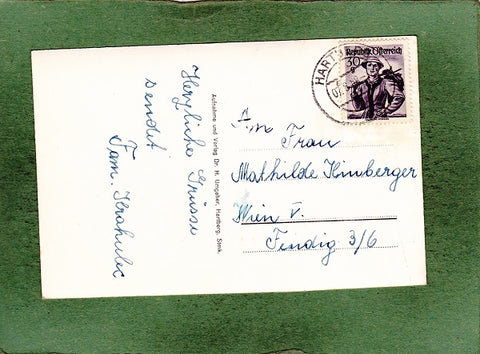 Herzliche Grüsse
sendet
Fam. Krahulec
Aufnahme und Verlag Dr. H. Ungeker, Hartberg, Stmk.
Republik Österreich
30 g
HART
An Frau
Mathilde Himberger
Wien V.
Fendig 3/6